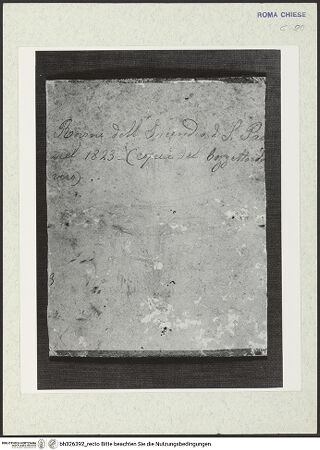 ROMA CHIESE
Rovine dell Incendio di S. Pao
nel 1823 - (copia dal bozzetto d
vero)
bh026392_recto Bitte beachten Sie die Nutzungsbedingungen